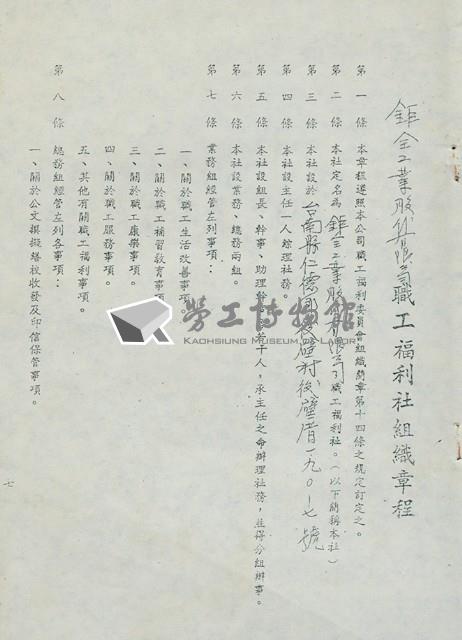 鉅全工業股份有限公司職工福利社組織章程
第一條 本章程遵照本公司職工福利委員會組織簡章第十四條之規定訂定之。
第二條 本社定名為鉅全工業股份有限公司職工福利社。(以下簡稱本社)
第三條 本社設於台南縣仁德鄉後壁村後壁厝一九〇-七號
第四條 本社設主任一人綜理社務。
第五條 本社設組長、幹事、助理幹事若干人，承主任之命辦理社務，並得分組辦事。
第六條 本社設業務、總務兩組。
第七條 業務組經管左列事項：
一、關於職工生活改善事項
二、關於職工補習教育事項
三、關於職工康樂事項。
四、關於職工服務事項。
五、其他有關職工福利事項。
第八條 總務組經管左列各事項：
一、關於公文撰擬繕校收發及印信保管事項。
七
勞工博物館
KAOHSIUNG MUSEUM OF LABOR